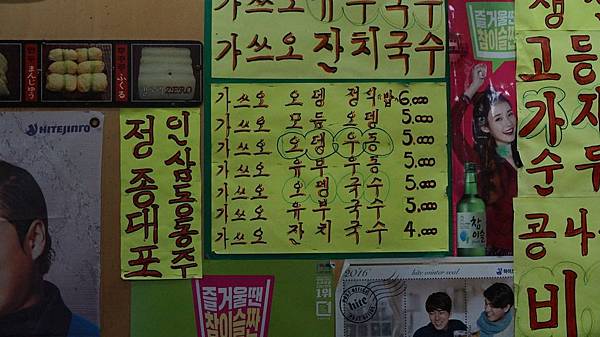 가쓰오 유부국수
가쓰오 잔치국수
가쓰오 오뎅 정식밥 6.000
가쓰오 모듬 오뎅 5.000
가쓰오 오뎅 우동 5.000
가쓰오 유부 우동 5.000
가쓰오 오뎅 국수 5.000
가쓰오 유부 국수 5.000
가쓰오 잔치 국수 4.000
まんじゅう
ふくろ
HITEJINRO
인삼동동주
정종대포
즐거울땐
참이슬짠
참이슬
고등
가자
순두
콩나
비
즐거울땐
참이슬짠
1위
2016
hite winter seal
hite